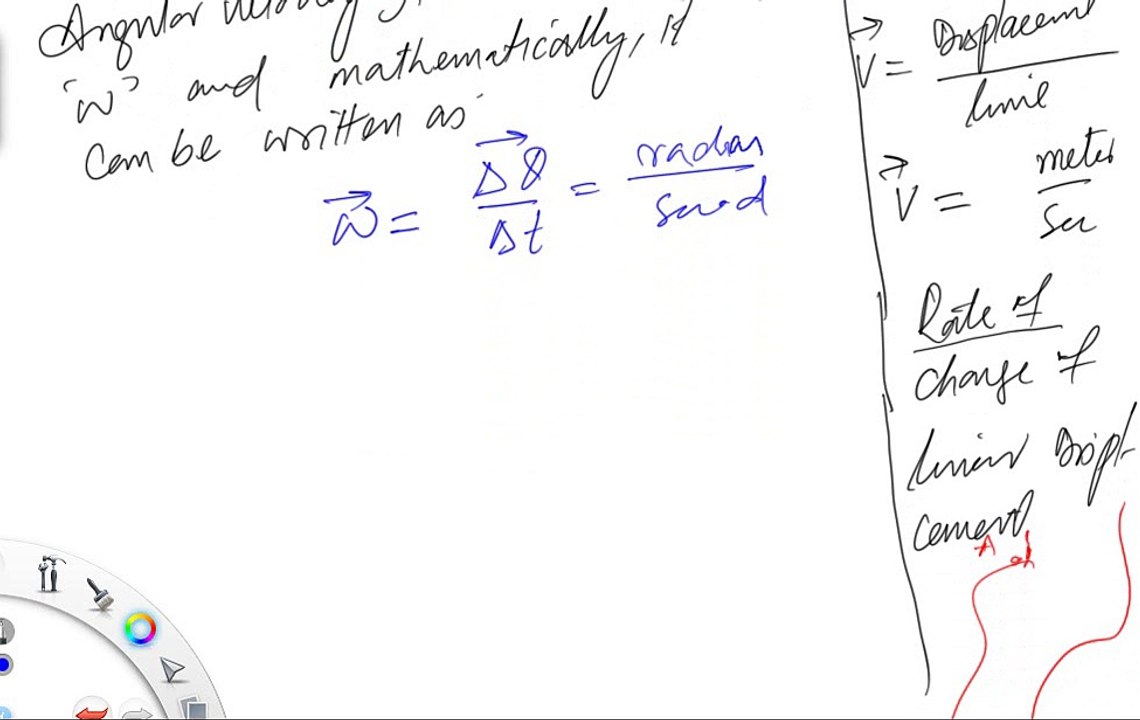 Angular
'w' and mathematically, it
can be written as
w⃗ = Δθ⃗/Δt = radian/second
V⃗ = Displacement/time
V⃗ = meter/sec
Rate of
change of
linear Displ-
cement
A